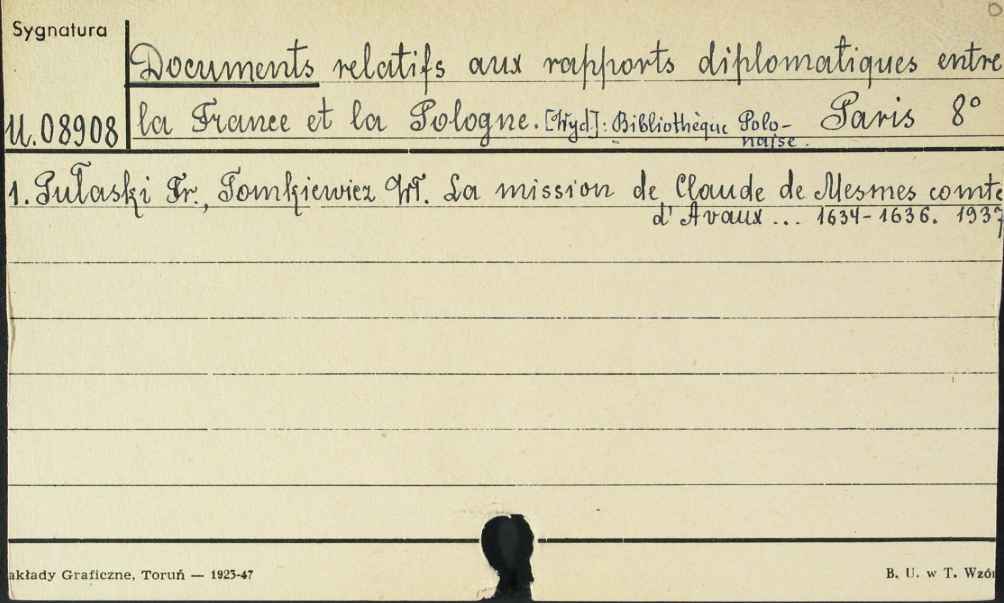 Sygnatura
Documents relatifs aux rapports diplomatiques entre
U.08908 la France et la Pologne. [Wyd]: Bibliothèque Polo- Paris 8°
naise.
1. Pułaski Fr., Tomkiewicz Wł. La mission de Claude de Mesmes comte
d'Avaux ... 1634-1636. 1937
akłady Graficzne, Toruń — 1923-47
B. U. w T. Wzór